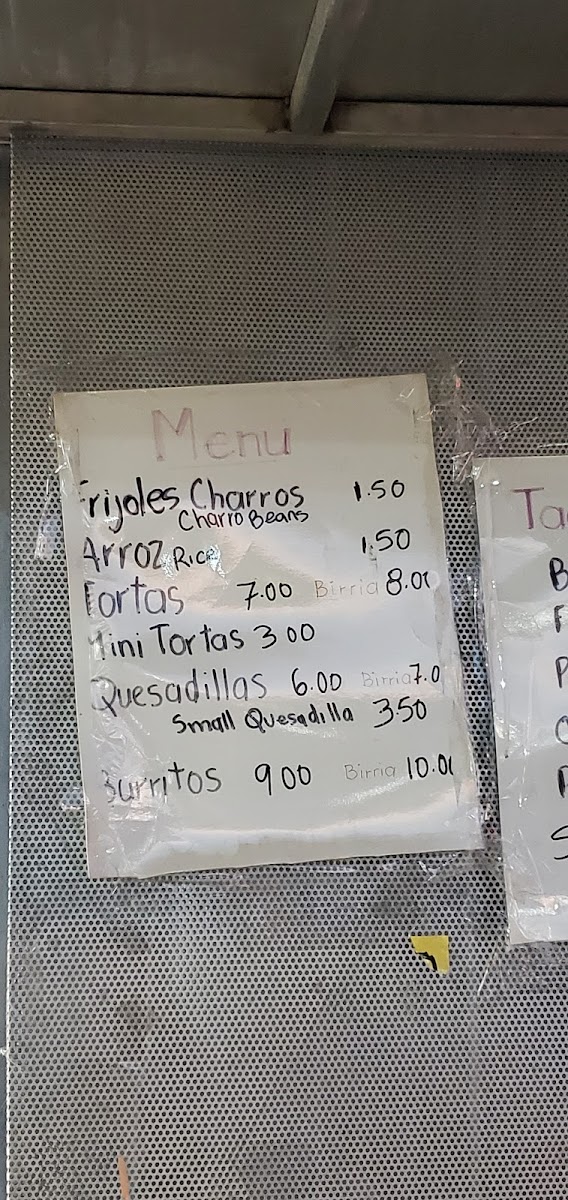 Menu
Frijoles Charros 1.50
Charro Beans
Arroz Rice 1.50
Tortas 7.00 Birria 8.00
Mini Tortas 3 00
Quesadillas 6.00 Birria 7.0
Small Quesadilla 350
Burritos 900 Birria 10.00
Ta
B
F
P